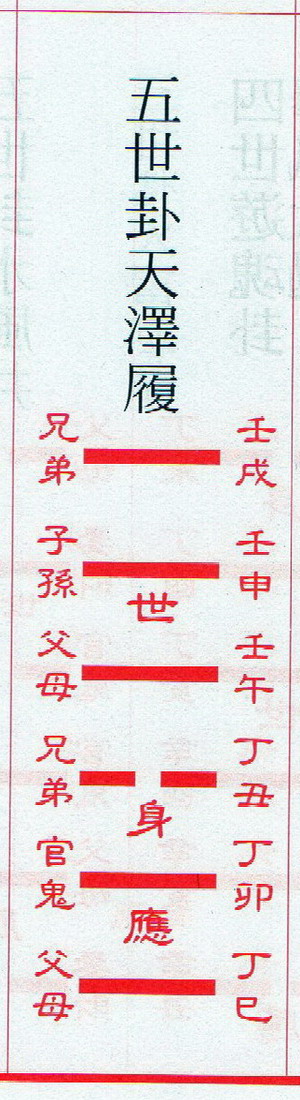 五世卦天澤履
壬戌
兄弟
壬申
子孫
世
壬午
父母
丁丑
兄弟
身
丁卯
官鬼
應
丁巳
父母